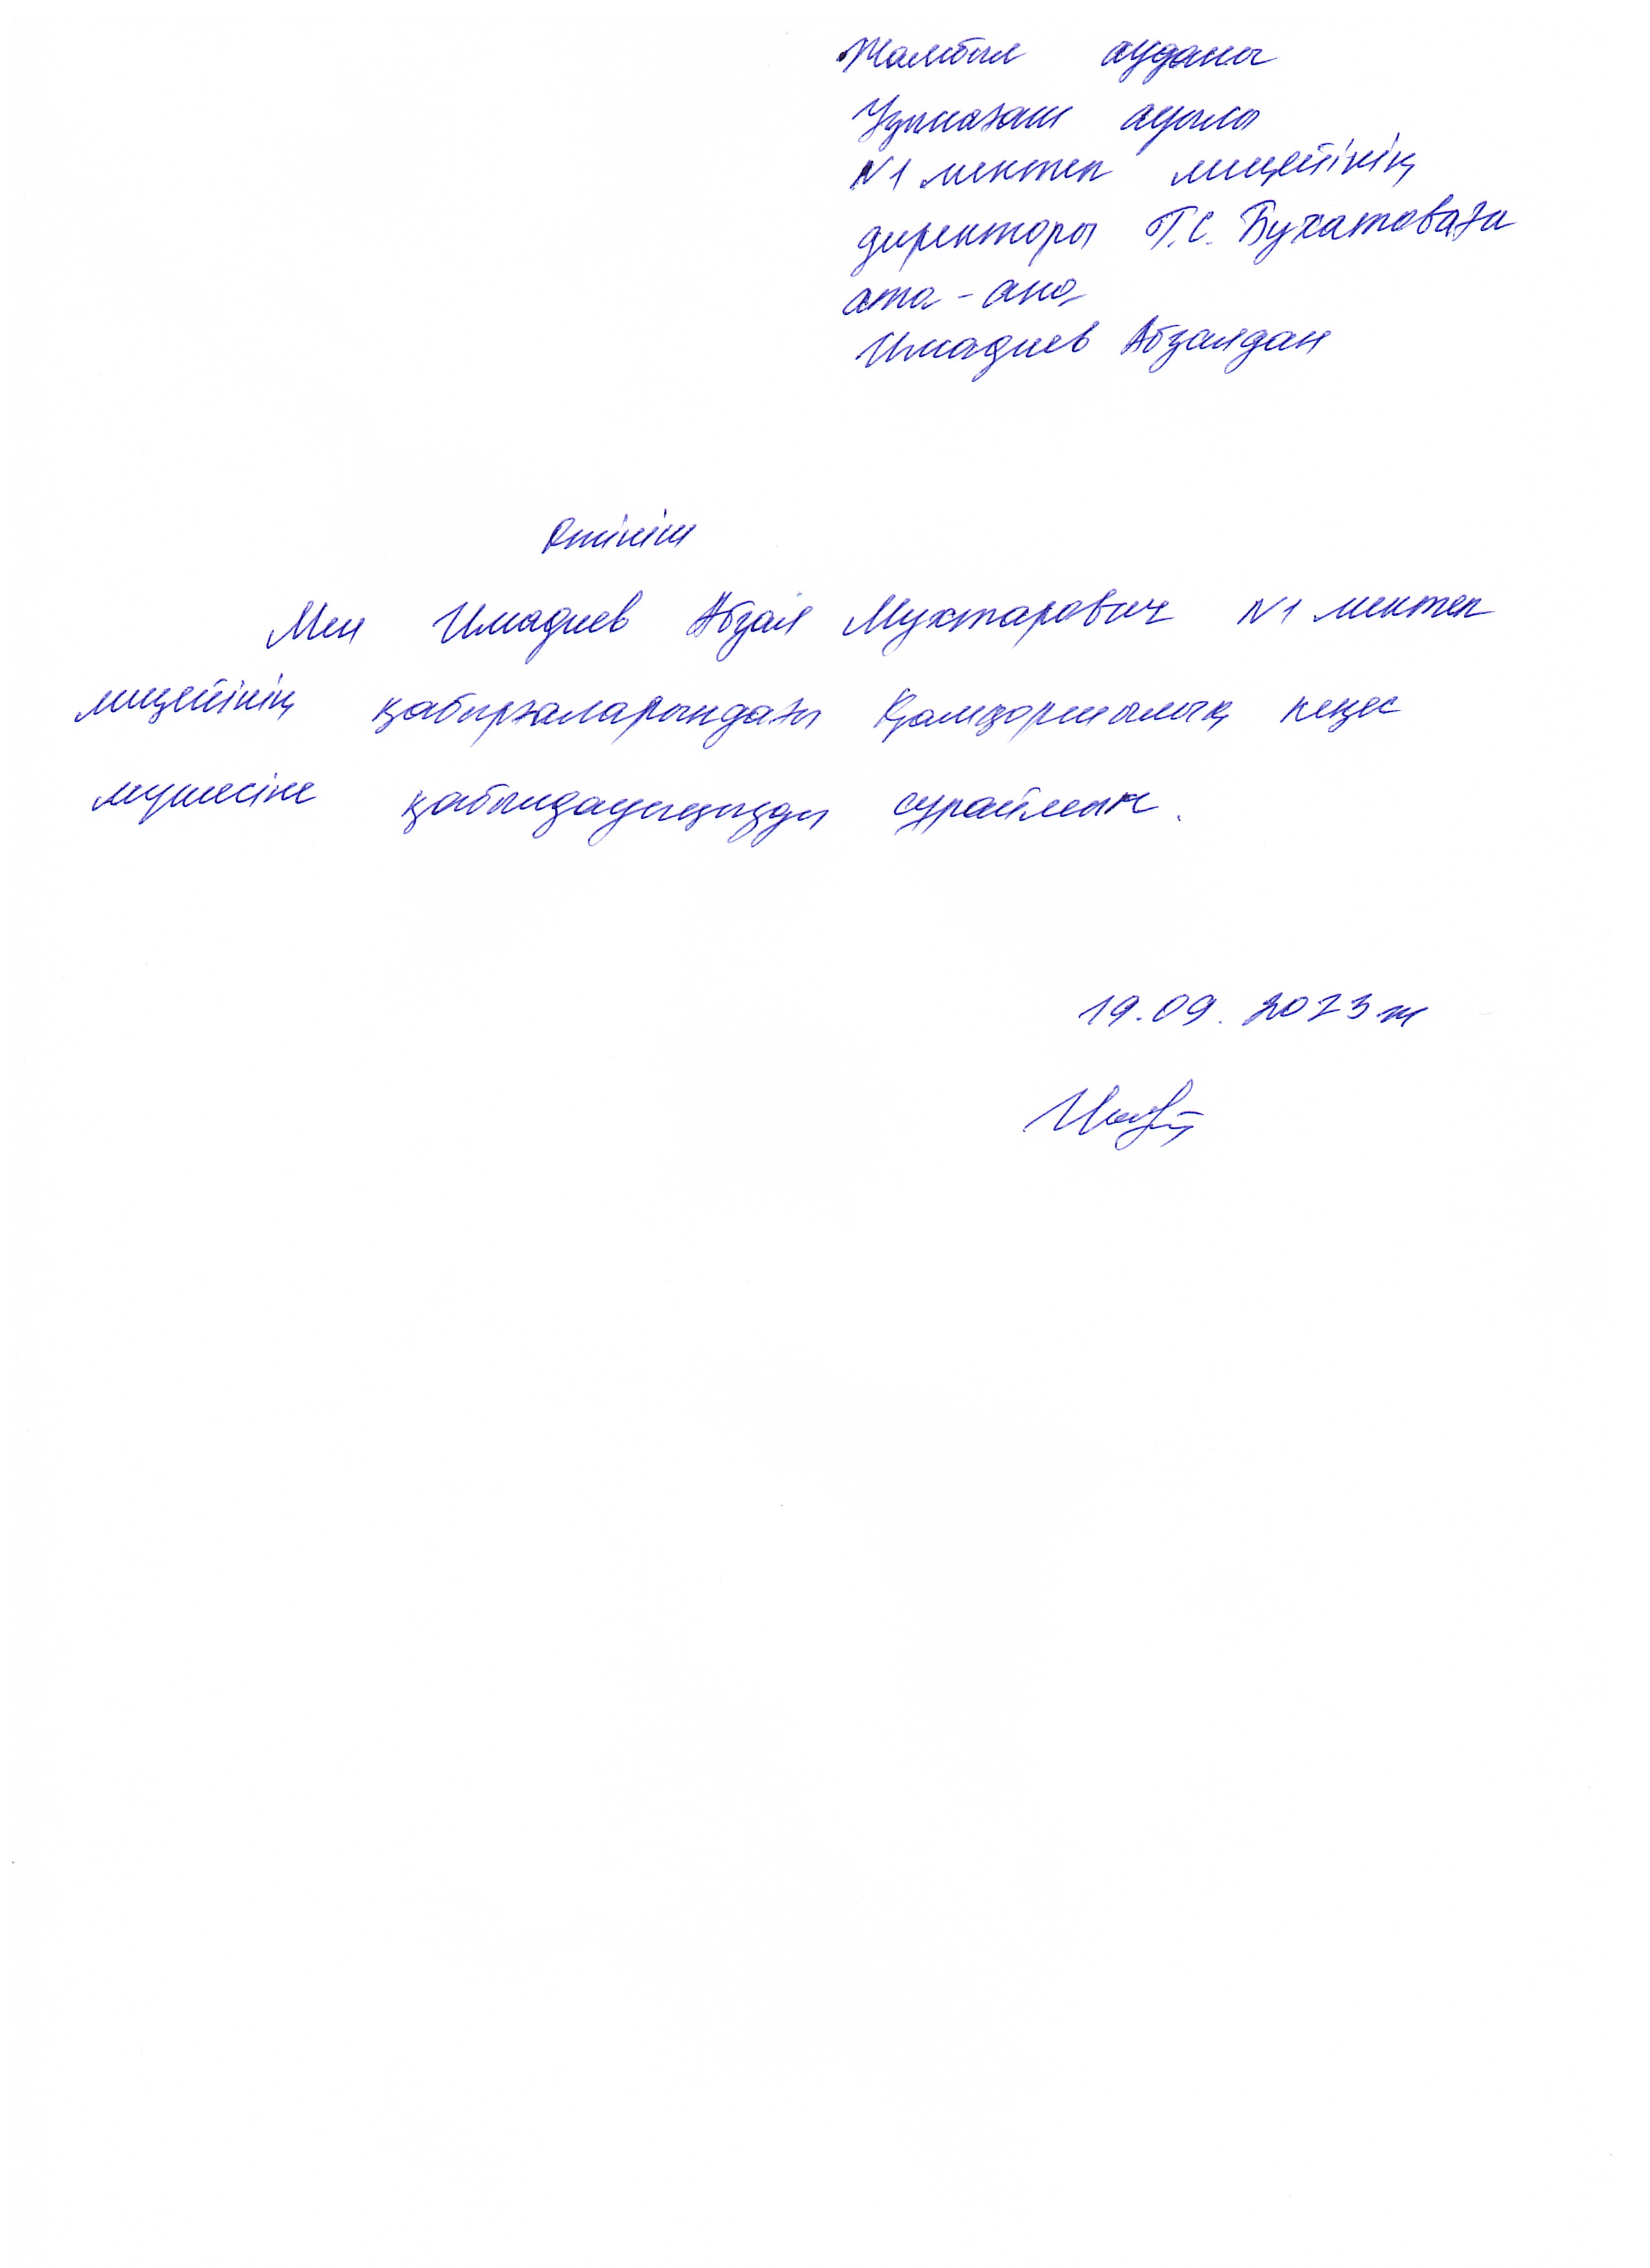 Жамбыл ауданы
Ұзынағаш ауылы
N1 мектеп лицейінің
директоры Г.С. Бухатоваға
ата-ана
Имадиев Абзалдан
Өтініш
Мен Имадиев Абзал Мухтарович N1 мектеп
лицейінің қабырғаларындағы Қамқоршылық кеңес
мүшесіне қабылдауыңызды сұраймын.
19.09.2023 ж